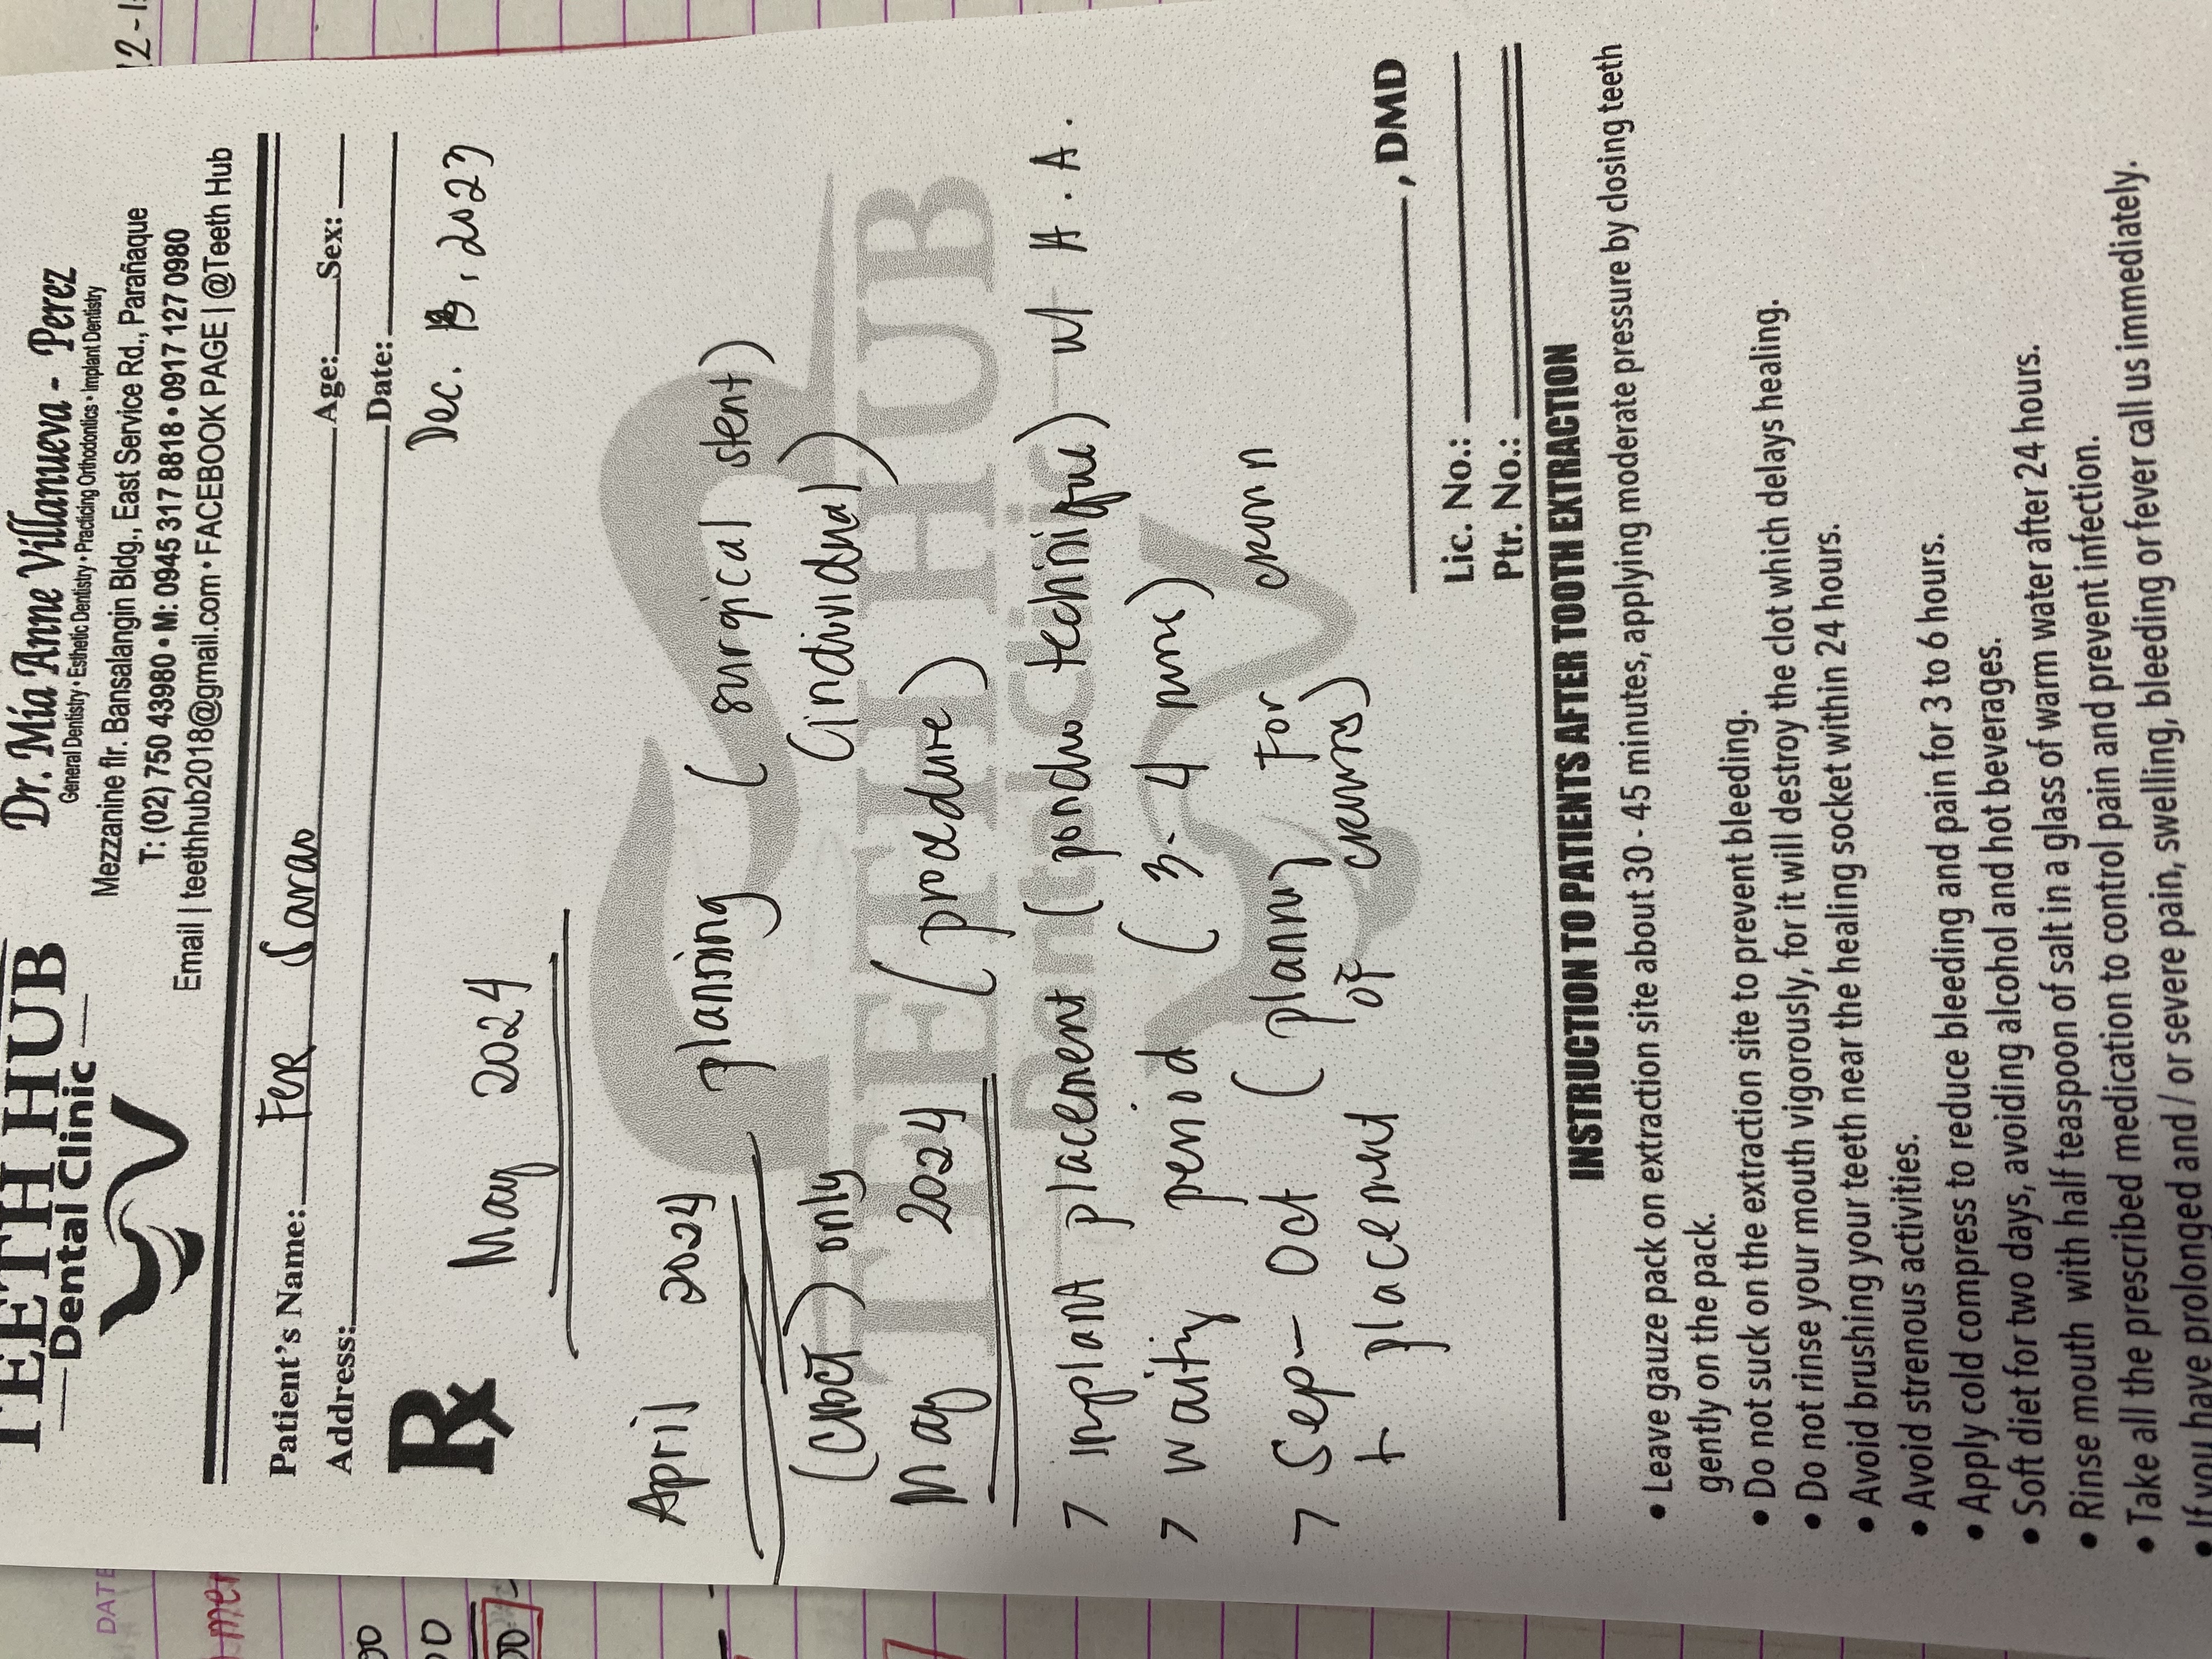 TEETH HUB
Dental Clinic
Dr. Mia Anne Villanueva - Perez
General Dentistry • Esthetic Dentistry • Practicing Orthodontics • Implant Dentistry
Mezzanine flr. Bansalangin Bldg., East Service Rd., Parañaque
T: (02) 750 43980 • M: 0945 317 8818 • 0917 127 0980
Email | teethhub2018@gmail.com • FACEBOOK PAGE | @Teeth Hub
Patient's Name: Fer Sarao Age: Sex:
Address: Date:
Rx
Dec. 13, 2023
May 2024
April 2024 planning (surgical stent)
(CBCT) only (individual)
May 2024 (procedure)
> implant placement (poncho technique) w/ H.A.
> waiting period (3-4 mos)
> Sep - Oct (planning for crown
+ placement of crowns)
TEETH HUB
Dental Clinic
, DMD
Lic. No.:
Ptr. No.:
INSTRUCTION TO PATIENTS AFTER TOOTH EXTRACTION
• Leave gauze pack on extraction site about 30 - 45 minutes, applying moderate pressure by closing teeth
gently on the pack.
• Do not suck on the extraction site to prevent bleeding.
• Do not rinse your mouth vigorously, for it will destroy the clot which delays healing.
• Avoid brushing your teeth near the healing socket within 24 hours.
• Avoid strenous activities.
• Apply cold compress to reduce bleeding and pain for 3 to 6 hours.
• Soft diet for two days, avoiding alcohol and hot beverages.
• Rinse mouth with half teaspoon of salt in a glass of warm water after 24 hours.
• Take all the prescribed medication to control pain and prevent infection.
• If you have prolonged and / or severe pain, swelling, bleeding or fever call us immediately.
DATE